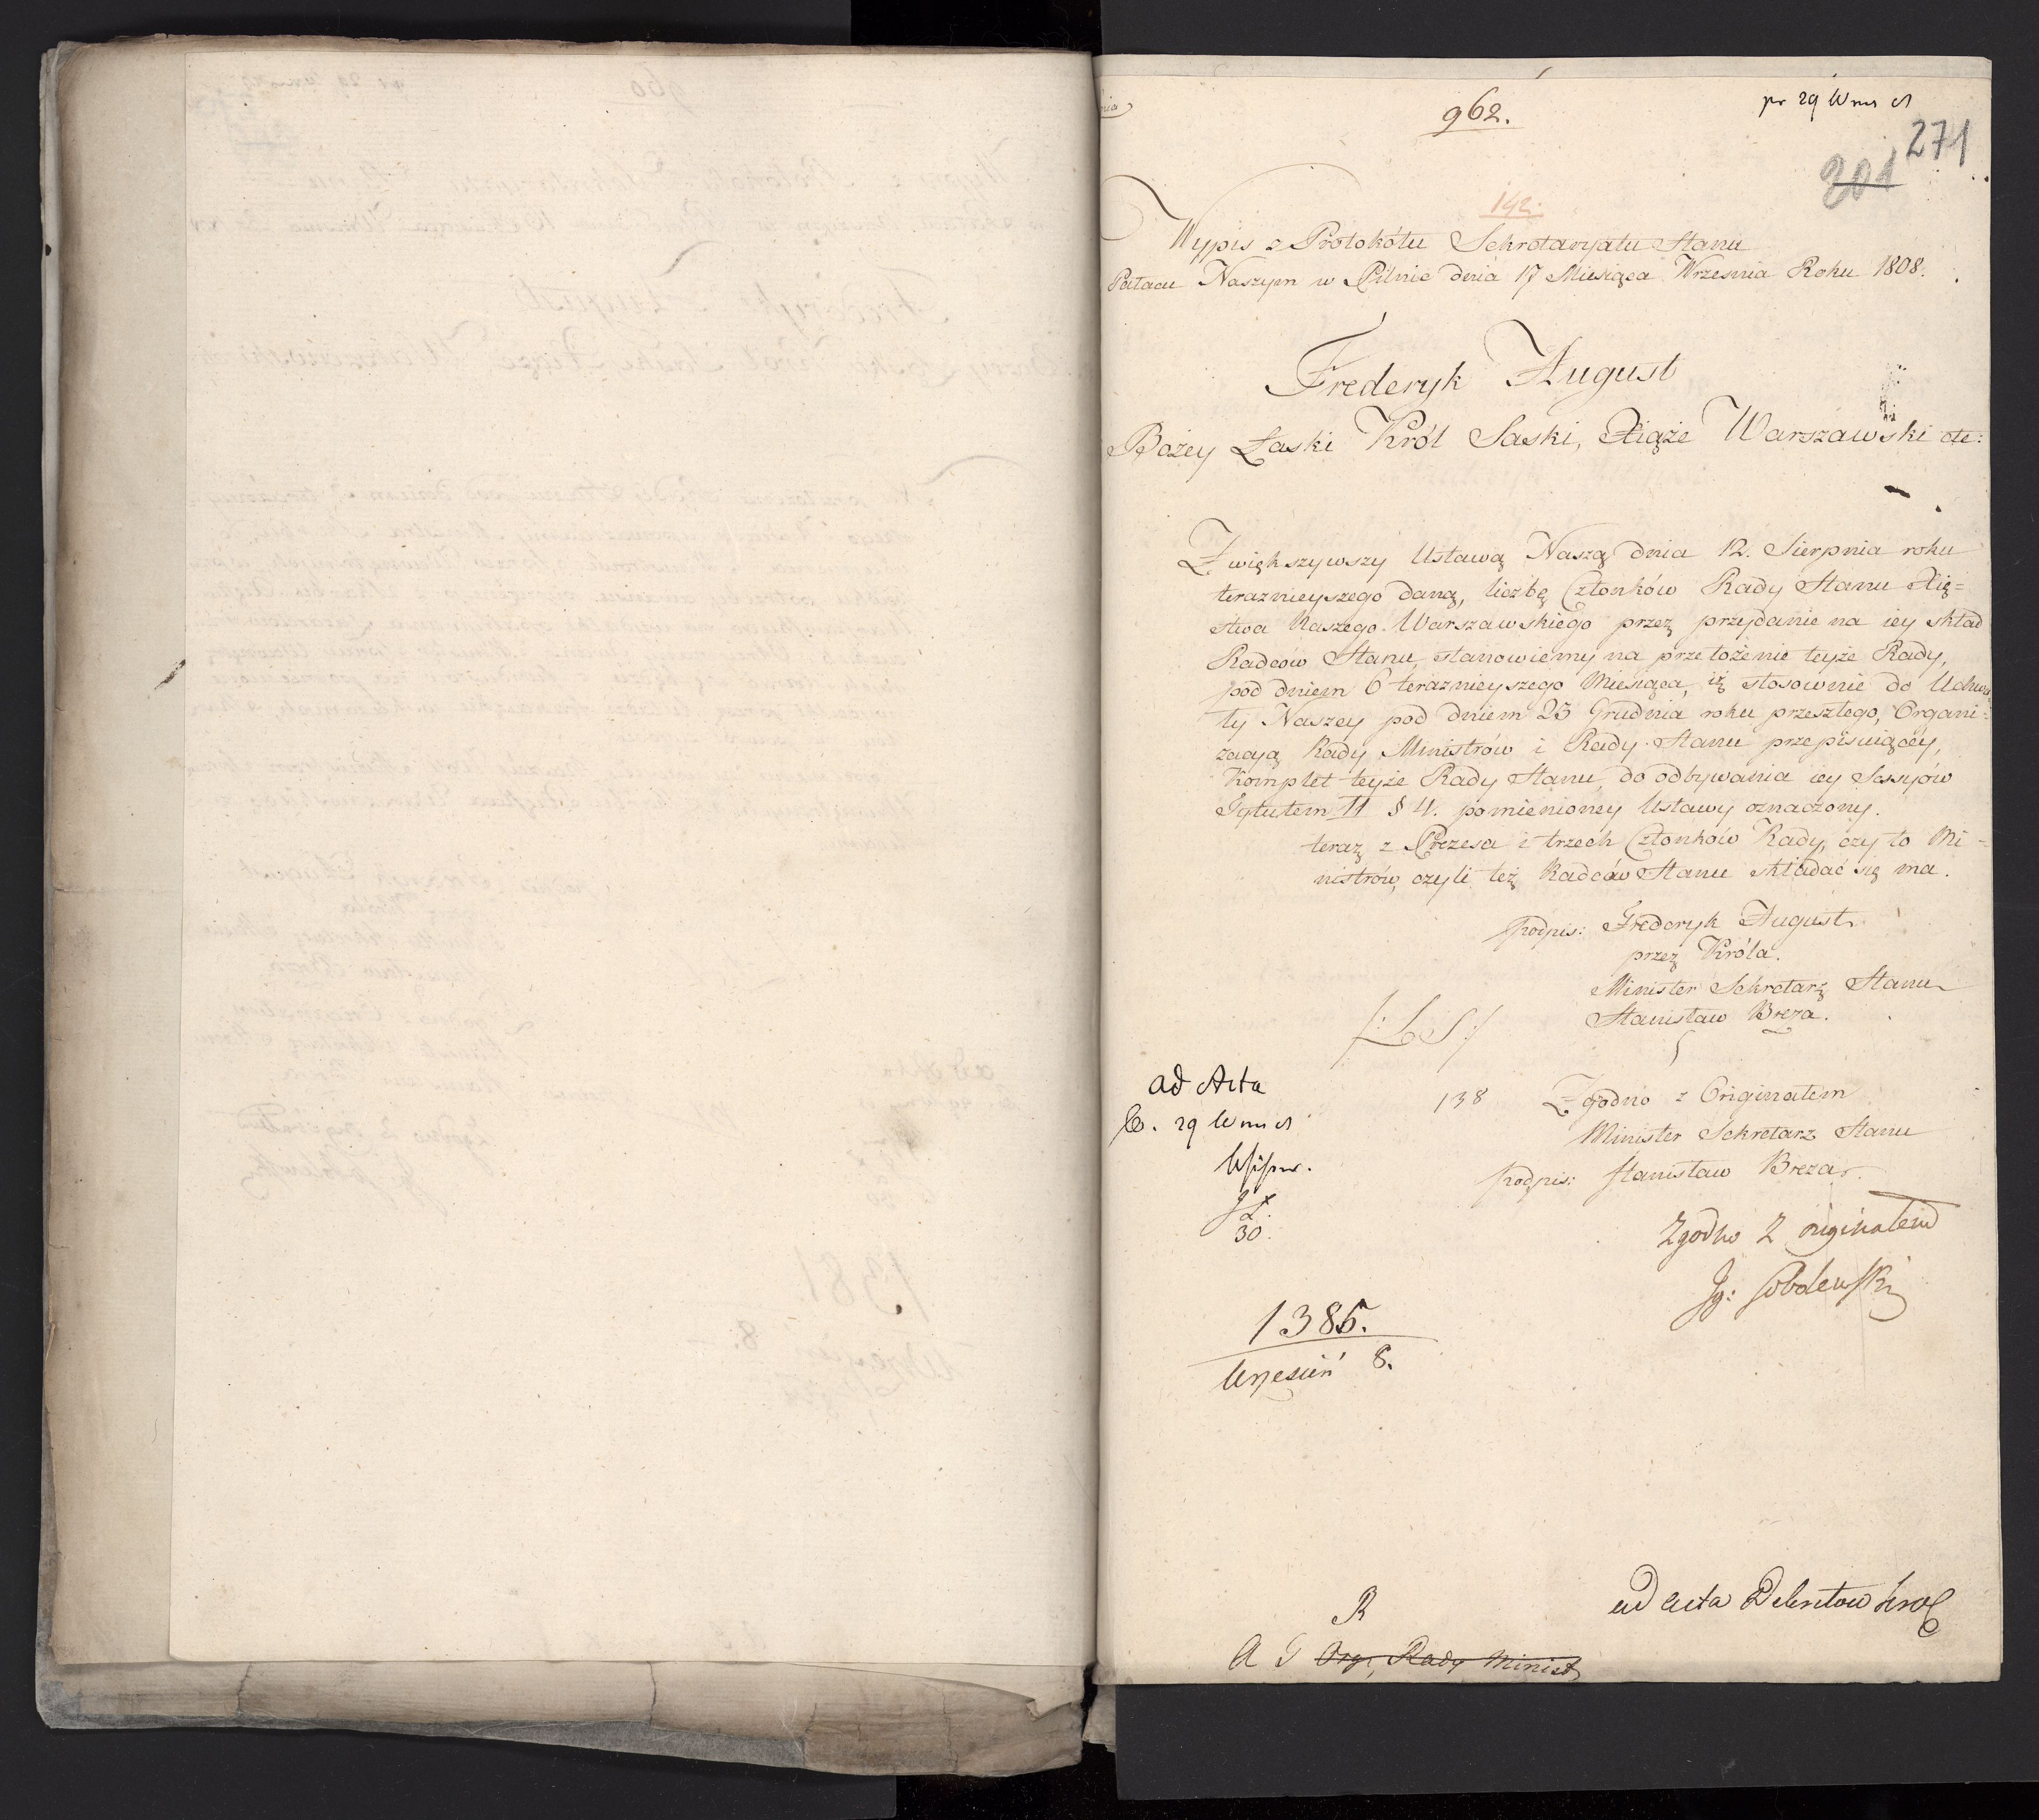 962.
pr 29 Wrus
271
301
142.
Wypis z Protokółu Sekretaryatu Stanu
Pałacu Naszym w Pilnic dnia 17 Miesiąca Września Roku 1808.
Frederyk August
Bożey Łaski Król Saski, Xiąże Warszawski etc:
Zwiększywszy Ustawą Naszą dnia 12. Sierpnia roku
teraznieyszego daną, liczbę Członków Rady Stanu Xię=
stwa Naszego Warszawskiego przez przydanie na iey skład
Radców Stanu, stanowiemy na przełożenie teyże Rady,
pod dniem 6 teraznieyszego Miesiąca, iż stosownie do Uchwa
ły Naszey pod dniem 23 Grudnia roku przeszłego, Organi=
zacyą Rady Ministrów i Rady Stanu przepisuiącéy,
Komplet teyże Rady Stanu, do odbywania iey Sessyów
Tytułem II § 11. pomienioney Ustawy oznaczony.
teraz z Prezesa i trzech Członków Rady, czy to Mi-
nistrów, czyli też Radców Stanu składać się ma.
podpis: Frederyk August
przez Króla.
Minister Sekretarz Stanu
Stanisław Breza.
/: L S :/
ad Acta
138 Zgodno z Originałem
29
Minister Sekretarz Stanu
podpis: Stanisław Breza
30.
Zgodno z originałem
Jg: Sobolewski
1385.
Wrzesień 8.
R
ad acta Dekretow Krol
A G Orga, Rady Minist